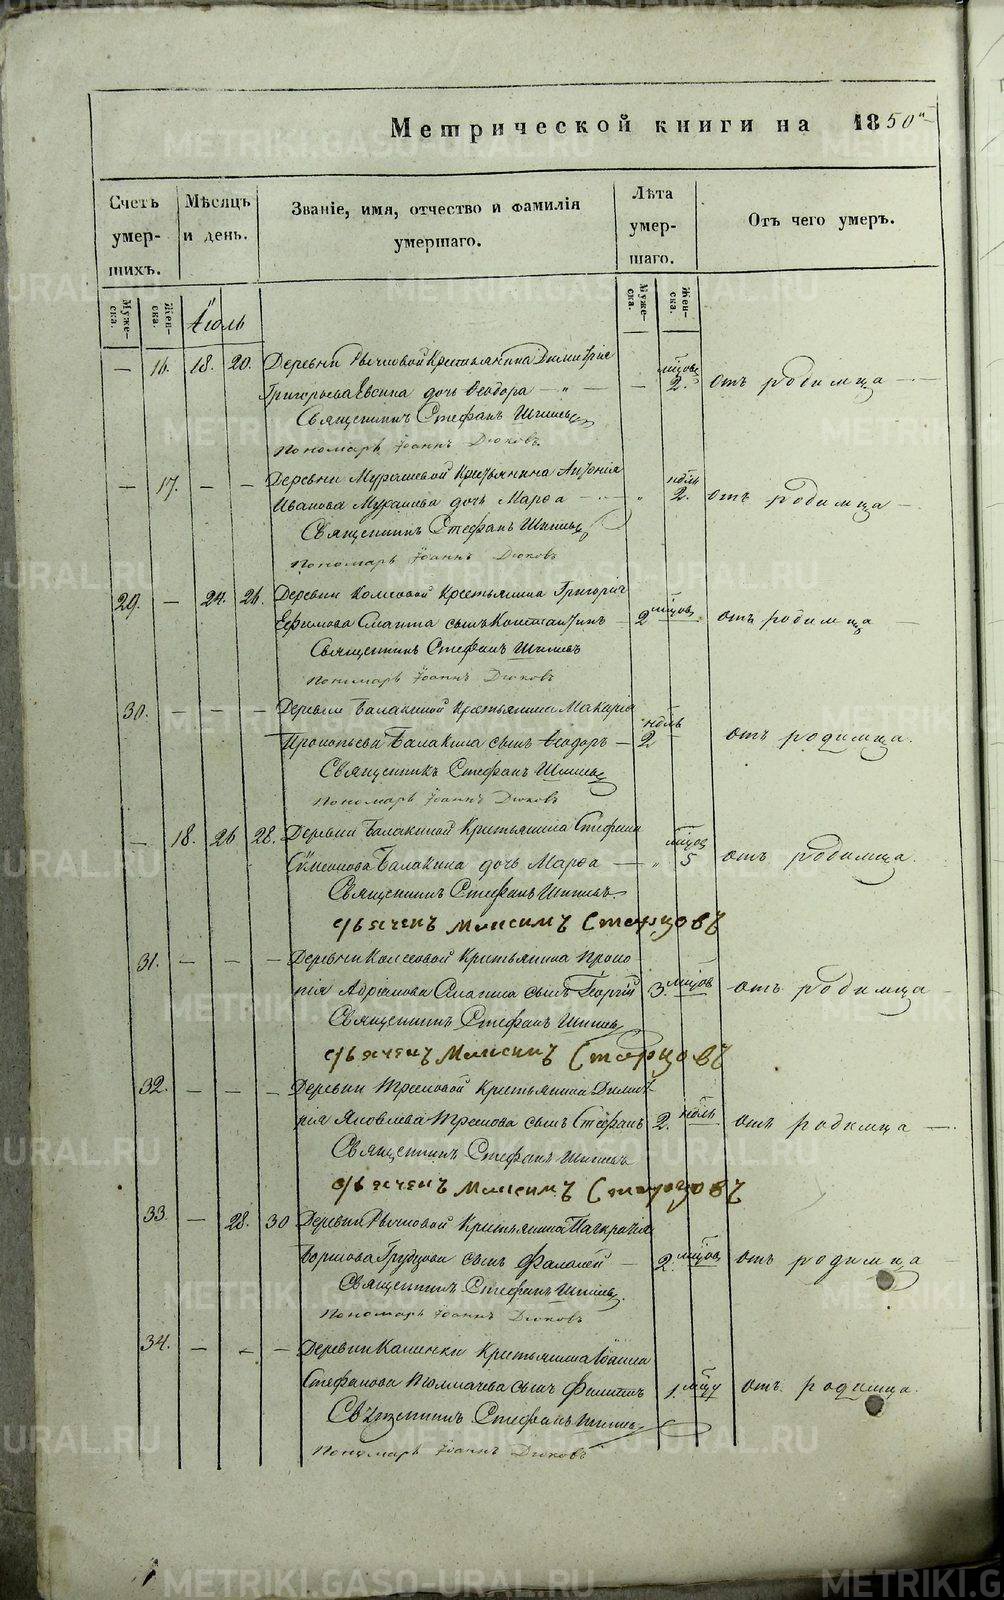 Метрической книги на 1850й
Счетъ умер- шихъ.
Мѣсяцъ и день.
Званіе, имя, отчество и фамилія умершаго.
Лѣта умер- шаго.
Отъ чего умеръ.
Муже- ска.
Жен- ска.
Іюль
Муже- ска.
Жен- ска.
— 16. 18. 20. Деревни Крестьянина Димитрія мцовъ
Григорьева Евсина дочь Ѳеодора — — 2. отъ родимца —
Священникъ Стефанъ Шишевъ
Пономарь Іоаннъ Дюковъ
— 17. — — Деревни Мурашевой Крестьянина Антонія ндль
Иванова Мурашова дочь Марѳа — 2. отъ родимца —
Священникъ Стефанъ Шишевъ
Пономарь Іоаннъ Дюковъ
29. — 24. 26. Деревни Крестьянина Григорія мцовъ
Ефимова сынъ Константинъ — 2 отъ родимца —
Священникъ Стефанъ Шишевъ
Пономарь Іоаннъ Дюковъ
30. — — — Деревни Балакиной Крестьянина Макарія ндль
Прокопьева Балакина сынъ Ѳеодоръ — 2 отъ родимца.
Священникъ Стефанъ Шишевъ
Пономарь Іоаннъ Дюковъ
— 18. 26 28. Деревни Балакиной Крестьянина Стефана мцовъ
Симеонова Балакина дочь Марѳа — 5 отъ родимца.
Священникъ Стефанъ Шишевъ
Дьячекъ Максимъ Старцовъ
31. — — — Деревни Крестьянина Проко
пія Адріанова сынъ Георгій 3. мцовъ отъ родимца —
Священникъ Стефанъ Шишевъ
Дьячекъ Максимъ Старцовъ
32. — — — Деревни Крестьянина Димит
рія Яковлева сынъ Стефанъ 2. ндль отъ родимца —
Священникъ Стефанъ Шишевъ
Дьячекъ Максимъ Старцовъ
33. — 28. 30 Деревни Крестьянина Панкратія
сынъ Фалалей — 2. мцовъ отъ родимца
Священникъ Стефанъ Шишевъ
Пономарь Іоаннъ Дюковъ
34. — — — Деревни Калинки Крестьянина Іоанна
Стефанова Толмачева сынъ Филиппъ 1. мцу отъ родимца.
Священникъ Стефанъ Шишевъ
Пономарь Іоаннъ Дюковъ
METRIKI.GASO-URAL.RU